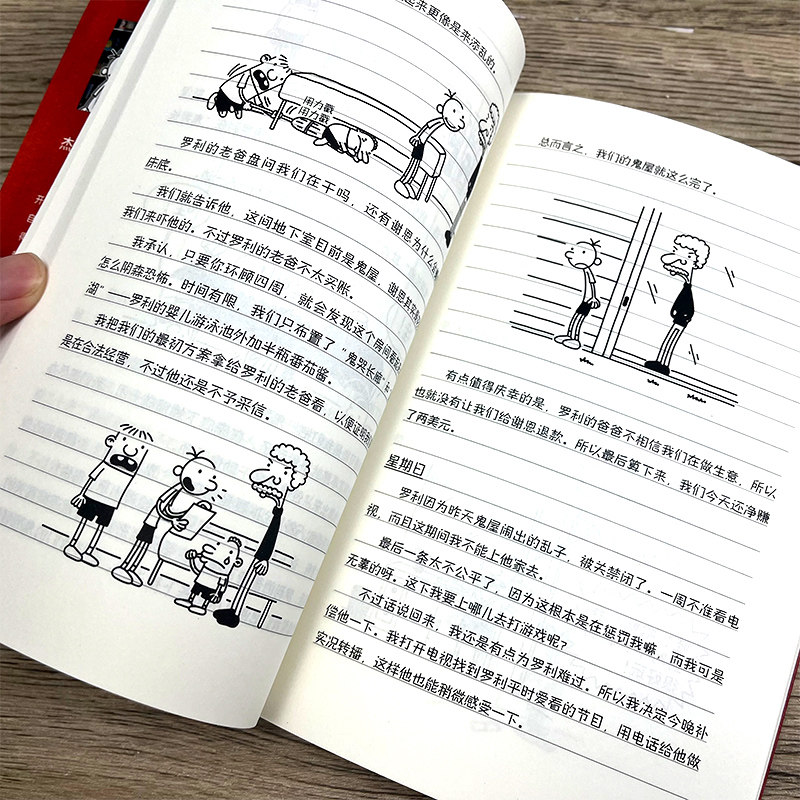 起来更像是来添乱的。
用力戳
用力戳
罗利的老爸盘问我们在干吗，还有谢恩为什么
床底。
我们就告诉他，这间地下室目前是鬼屋，谢恩
我们来吓他的。不过罗利的老爸不大买账。
我承认，只要你环顾四周，就会发现这个房间
怎么阴森恐怖。时间有限，我们只布置了“鬼哭长
湖”——罗利的婴儿游泳池外加半瓶番茄酱。
我把我们的最初方案拿给罗利的老爸看，以便证明
是在合法经营，不过他还是不予采信。
总而言之，我们的鬼屋就这么完了。
有点值得庆幸的是，罗利的爸爸不相信我们在做生意，所以
也就没有让我们给谢恩退款。所以最后算下来，我们今天还净赚
了两美元。
星期日
罗利因为昨天鬼屋闹出的乱子，被关禁闭了。一周不准看电
视，而且这期间我不能上他家去。
最后一条太不公平了，因为这根本是在惩罚我嘛，而我可是
无辜的呀。这下我要上哪儿去打游戏呢？
不过话说回来，我还是有点为罗利难过。所以我决定今晚补
偿他一下。我打开电视找到罗利平时爱看的节目，用电话给他做
实况转播，这样他也能稍微感受一下。
杰